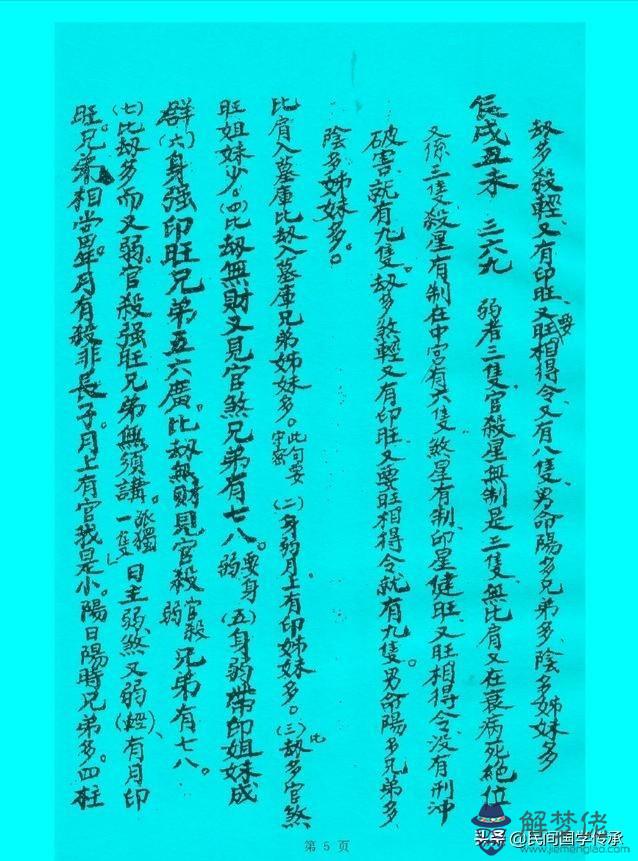 劫多殺輕、又有印旺、又要旺相得令、又有八隻、男命陽多兄弟多、陰多姊妹多
辰戌丑未 三六九 弱者三隻、官殺星無制是三隻、無比肩又在衰病死絕位
又係三隻、殺星有制在中字有六隻、煞星有制、印星健旺、又旺相得令、没有刑沖
破害、就有九隻。劫多煞輕又有印旺、又要旺相得令就有九隻。男命陽多兄弟多、
陰多姊妹多。
比肩入墓庫比劫入墓庫兄弟姊妹多。此句要守密 (二)身弱月上有印姊妹多。(三)比劫多官煞
旺姐妹少。(四)比劫無財又見官煞兄弟有七八。要身弱 (五)身弱帶印姐妹成
群 (六)身强印旺兄弟五六廣。比劫無財見官殺 官殺弱 兄弟有七八。
(七)比劫多而又弱。官殺强旺兄弟無須講。孤獨一隻 日主弱煞又弱(輕)、有月印
旺。兄弟相當。年月有殺非長子。月上有官我是小。陽日陽時兄弟多。四柱
第 5 页
解梦佬
www.jiemenglao.com
头条 @民间国学传承